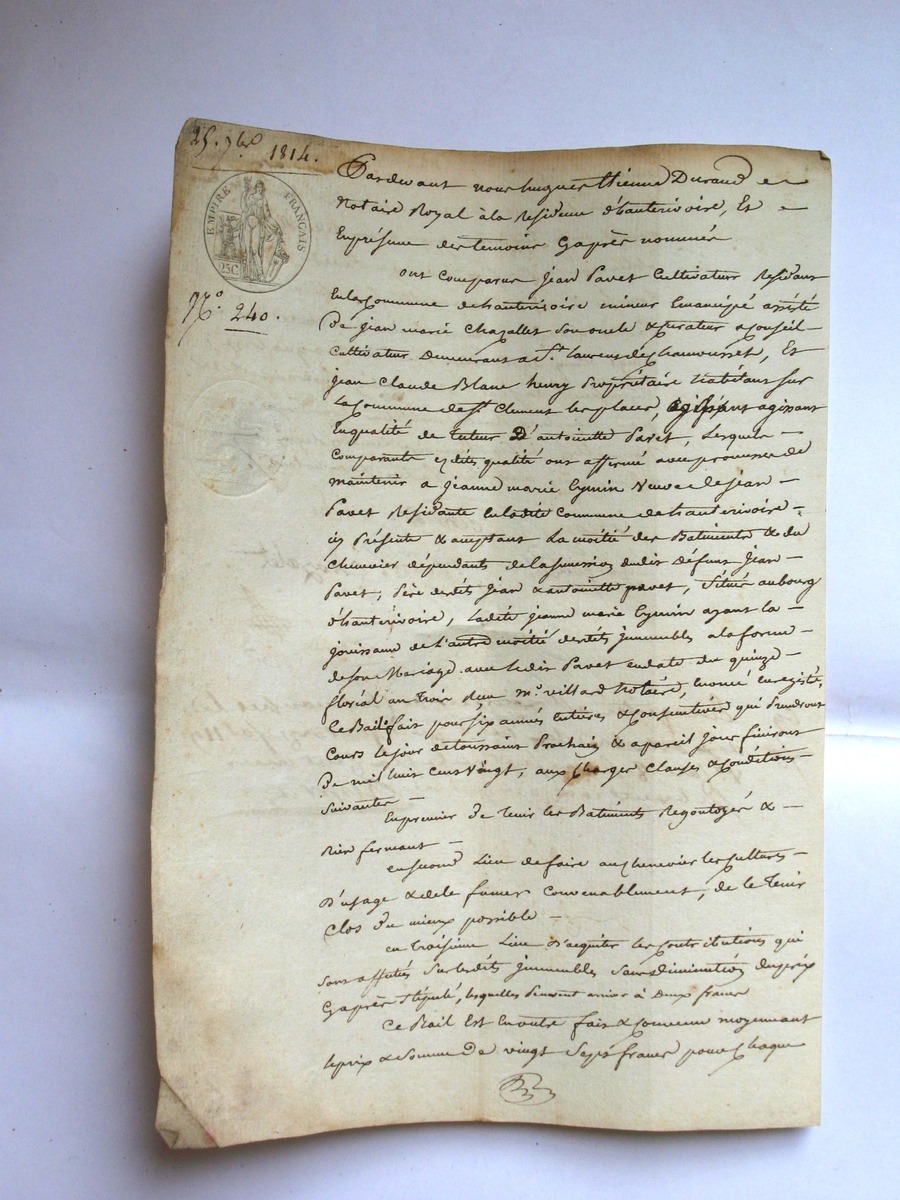 25. 7bre 1814.
EMPIRE FRANÇAIS
25C
N.o 240.
Pardevant nous hugues Etienne Durand
Notaire Royal à la Residence d'hauterivoire, Et
En présence des temoins Cyaprès nommés
ont comparus Jean Pavet Cultivateur Residant
En la Commune de hauterivoire mineur Emancipé assisté
De jean marie Chazallet son oncle & Curateur & Conseil
Cultivateur Demeurant a St. laurent de Chamousset, Et
jean Claude Blanc henry Propriétaire habitant sur
la Commune de St. Clement les places, agissant
En qualité de tuteur D'antoinette Pavet, Lesquels
Comparants esdites qualité ont affermé avec promesse de
maintenir a jeanne marie Veuve de jean
Pavet Residante en ladite Commune de hauterivoire
icy Présente & acceptant La moitié des Batiments & du
Chenevier dépendants de la succession dudit défunt jean
Pavet, Père desdits jean & antoinette pavet, Situés au bourg
d'hauterivoire, Ladite jeanne marie ayant la
jouissance de l'autre moitié desdits jmmeubles a la forme
de son Mariage avec ledit Pavet en date du quinze
floréal an trois Reçu Me. villard Notaire, Enregistré,
le Bail fait pour six années Entières & Consecutives qui Prendront
Cours le jour de toussaint Prochain & a pareil jour finiront
De mil huit cent vingt, aux Charges Clauses & Conditions
Suivantes
En premier De tenir les Batiments Regoutoyés &
Bien fermant
en second Lieu de faire au chenevier les Cultures
D'usage & de le fumer Convenablement, de le tenir
Clos du mieux possible
en troisième Lieu D'acquiter les Contributions qui
sont affectées sur lesdits jmmeubles sans diminution du prix
Cyaprès stipulé, lesquelles Peuvent arriver à Deux francs
Ce Bail Est En outre fait & Convenu moyennant
le prix & Somme De vingt Sept francs pour Chaque